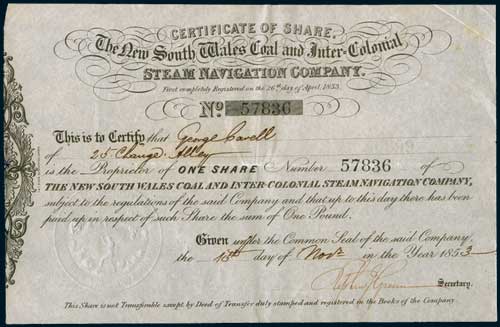 CERTIFICATE OF SHARE.
The New South Wales Coal and Inter-Colonial
STEAM NAVIGATION COMPANY.
First completely Registered on the 26th day of April, 1853.
No 57836
This is to Certify that George Cavell
of 25 Change Alley
is the Proprietor of ONE SHARE Number 57836 of
THE NEW SOUTH WALES COAL AND INTER-COLONIAL STEAM NAVIGATION COMPANY,
subject to the regulations of the said Company and that up to this day there has been
paid up in respect of such Share the sum of One Pound.
Given under the Common Seal of the said Company,
the 18th day of Novr in the Year 1853
Secretary.
This Share is not Transferable except by Deed of Transfer duly stamped and registered in the Books of the Company.